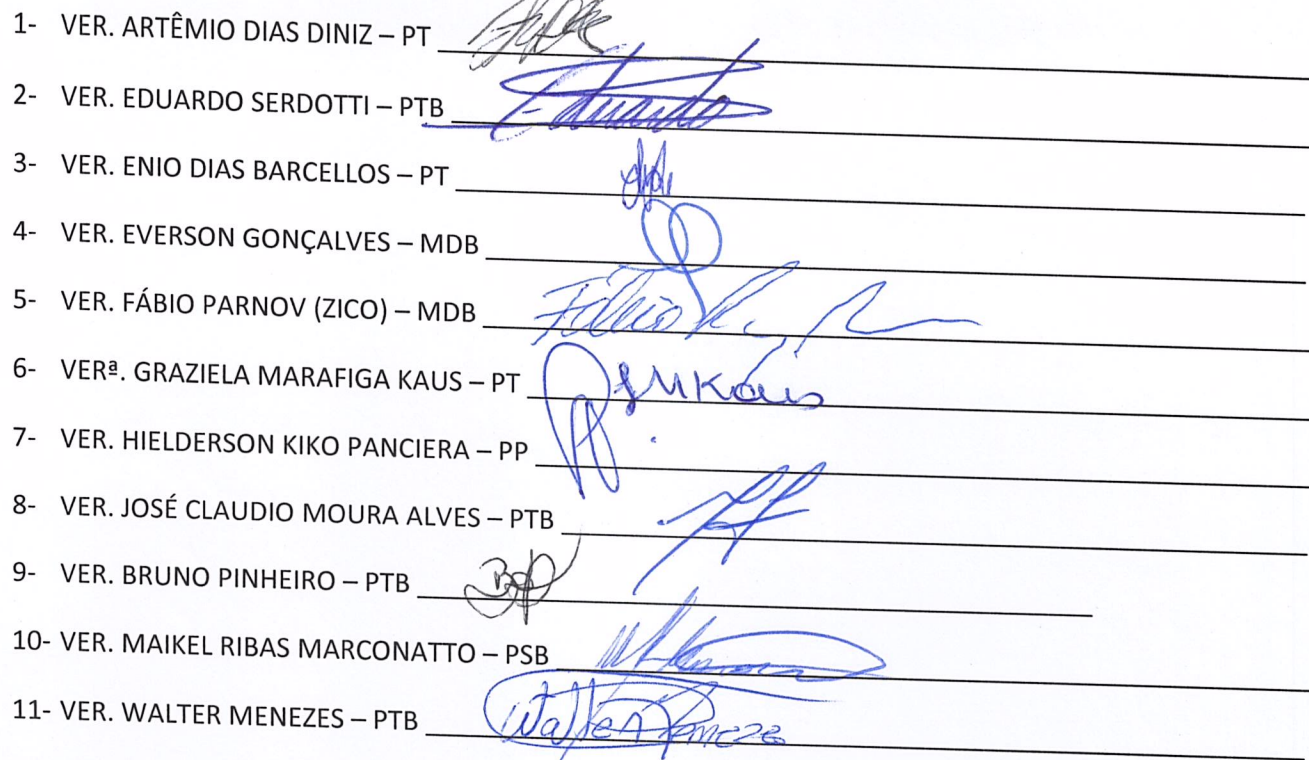 1- VER. ARTÊMIO DIAS DINIZ – PT
2- VER. EDUARDO SERDOTTI – PTB Eduardo
3- VER. ENIO DIAS BARCELLOS – PT
4- VER. EVERSON GONÇALVES – MDB
5- VER. FÁBIO PARNOV (ZICO) – MDB Fábio
6- VERª. GRAZIELA MARAFIGA KAUS – PT GMKaus
7- VER. HIELDERSON KIKO PANCIERA – PP
8- VER. JOSÉ CLAUDIO MOURA ALVES – PTB
9- VER. BRUNO PINHEIRO – PTB
10- VER. MAIKEL RIBAS MARCONATTO – PSB
11- VER. WALTER MENEZES – PTB Walter